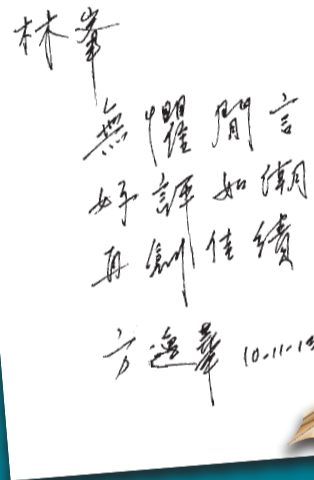 林峯
無懼閒言
好評如潮
再創佳績
方逸華 10-11-13